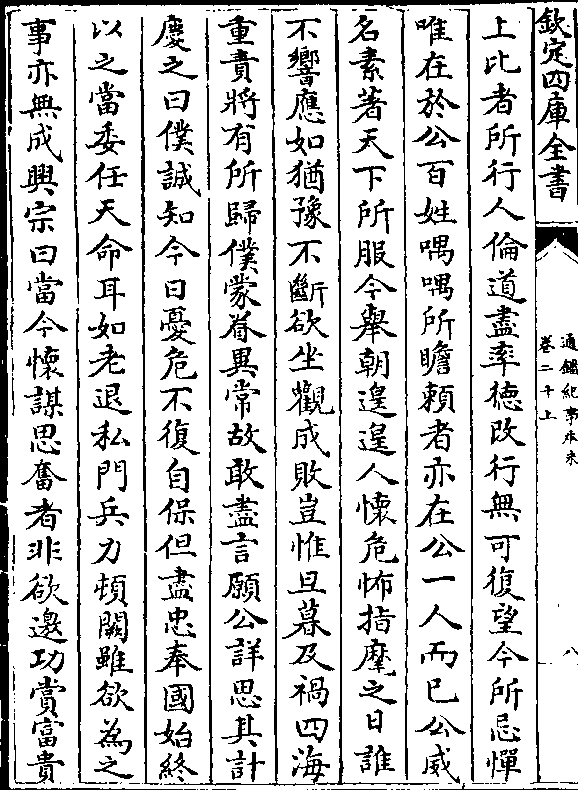 欽定四庫全書
通鑑紀事本末
卷二十上
八
上比者所行人倫道盡率德改行無可復望今所忌憚
唯在於公百姓喁喁所瞻賴者亦在公一人而已公威
名素著天下所服今舉朝遑遑人懷危怖指麾之日誰
不響應如猶豫不斷欲坐觀成敗豈惟旦暮及禍四海
重責將有所歸僕蒙眷異常故敢盡言願公詳思其計
慶之曰僕誠知今日憂危不復自保但盡忠奉國始終
以之當委任天命耳如老退私門兵力頓闕雖欲為之
事亦無成興宗曰當今懷謀思奮者非欲邀功賞富貴